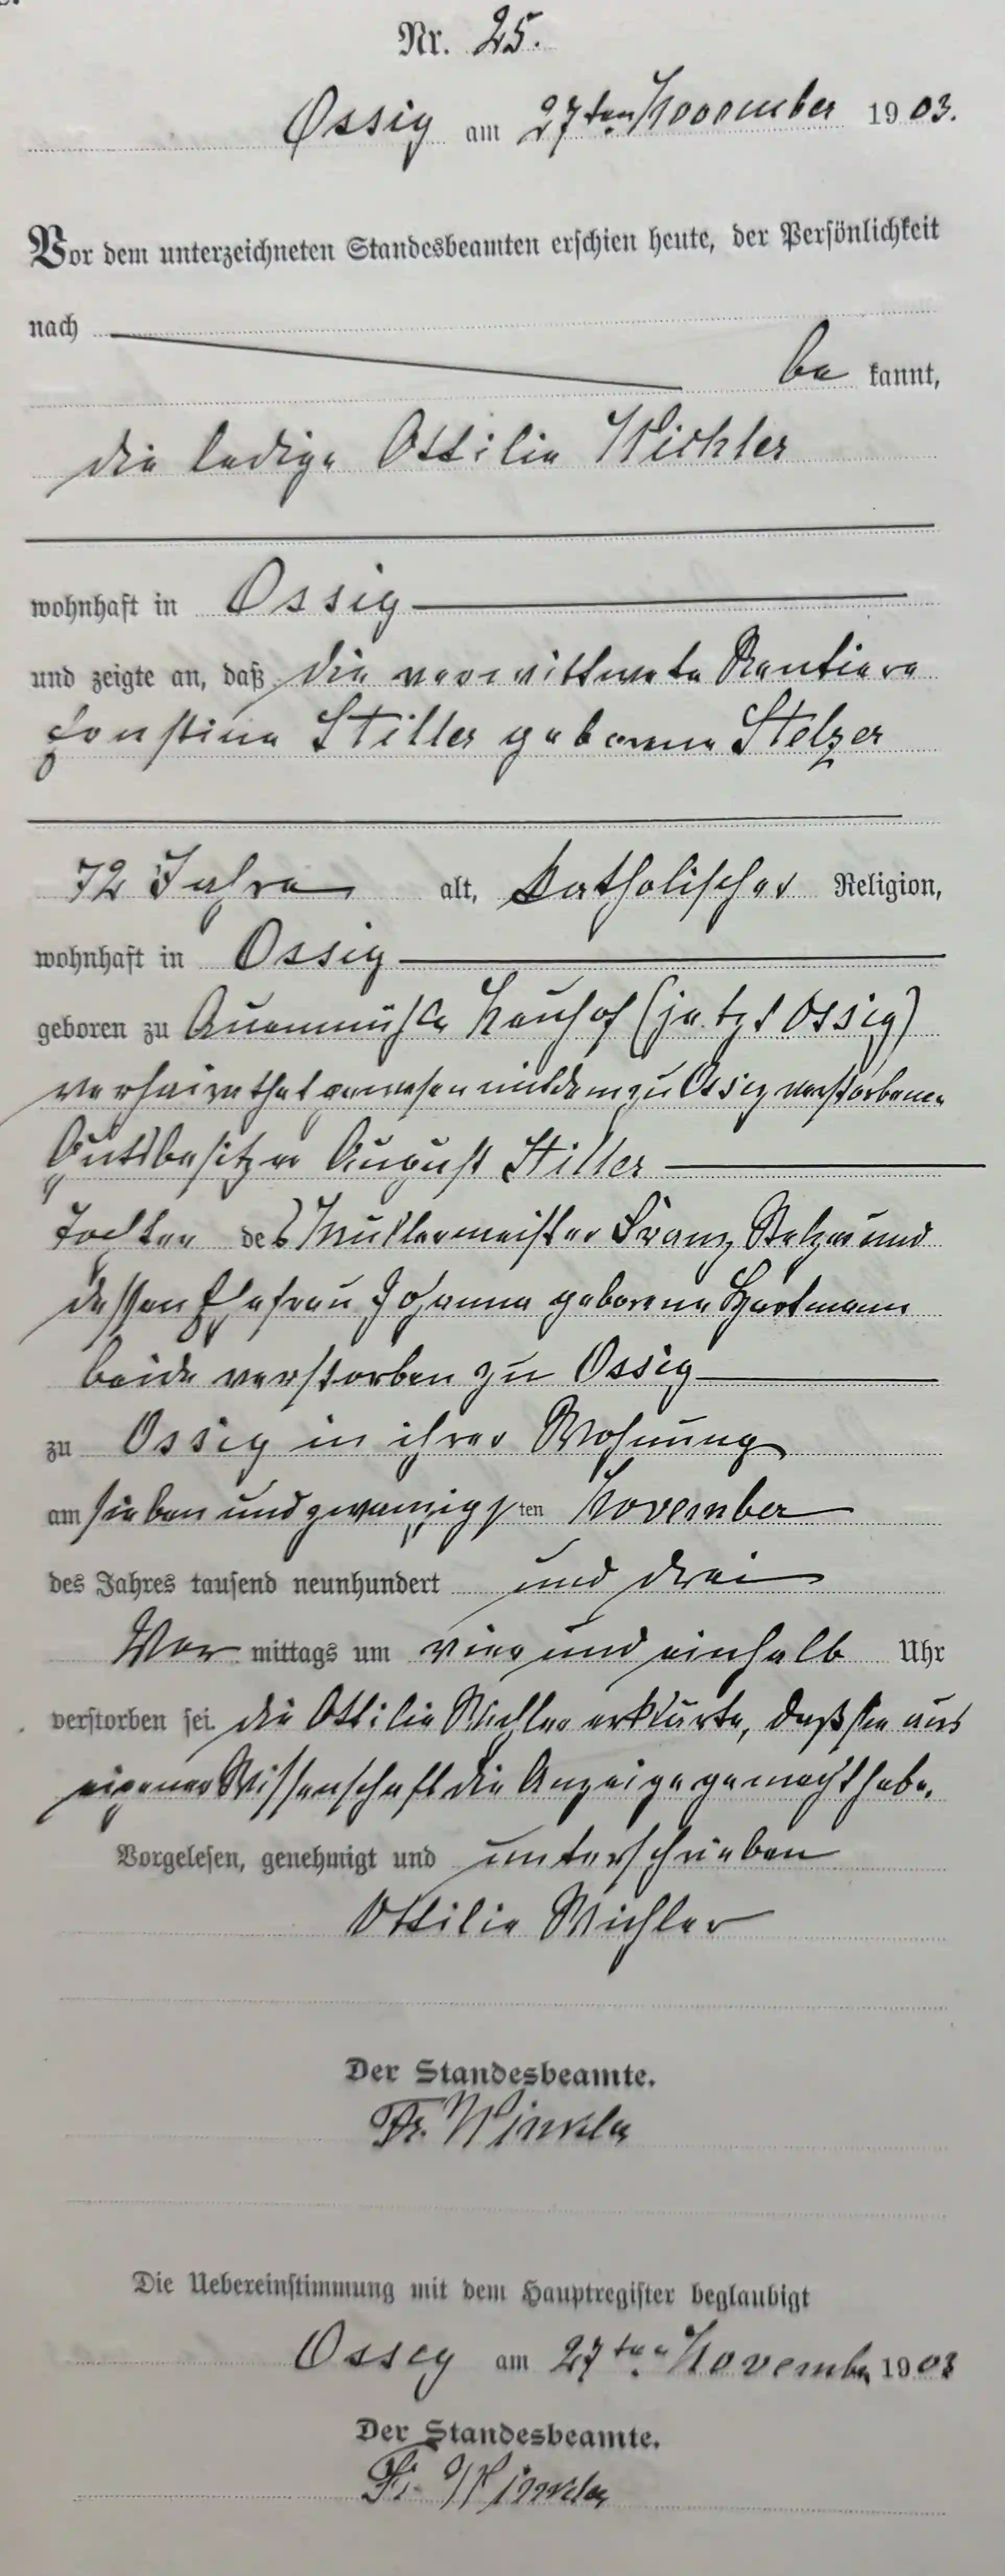 Nr. 25.
Ossig am 27ten November 1903.
Vor dem unterzeichneten Standesbeamten erschien heute, der Persönlichkeit
nach
be kannt,
die ledige Ottilie Wichler
wohnhaft in Ossig
und zeigte an, daß die verwittwete Rentiere
Faustina Stiller geborene Stelzer
72 Jahre alt, katholischer Religion,
wohnhaft in Ossig
geboren zu Auenmühle (jetzt Ossig)
verheirathet gewesen mit dem zu Ossig verstorbenen
Gutsbesitzer August Stiller
Tochter des Müllermeister Franz Stelzer und
dessen Ehefrau Johanna geborene Hartmann
beide verstorben zu Ossig
zu Ossig in ihrer Wohnung
am sieben und zwanzigsten November
des Jahres tausend neunhundert und drei
Vor mittags um vier und einhalb Uhr
verstorben sei. die Ottilie Wichler erklärte, daß sie aus
eigener Wissenschaft die Anzeige gemacht habe.
Vorgelesen, genehmigt und unterschrieben
Ottilie Wichler
Der Standesbeamte.
Fr. Winkler
Die Uebereinstimmung mit dem Hauptregister beglaubigt
Ossig am 27ten November 1903
Der Standesbeamte.
Fr. Winkler